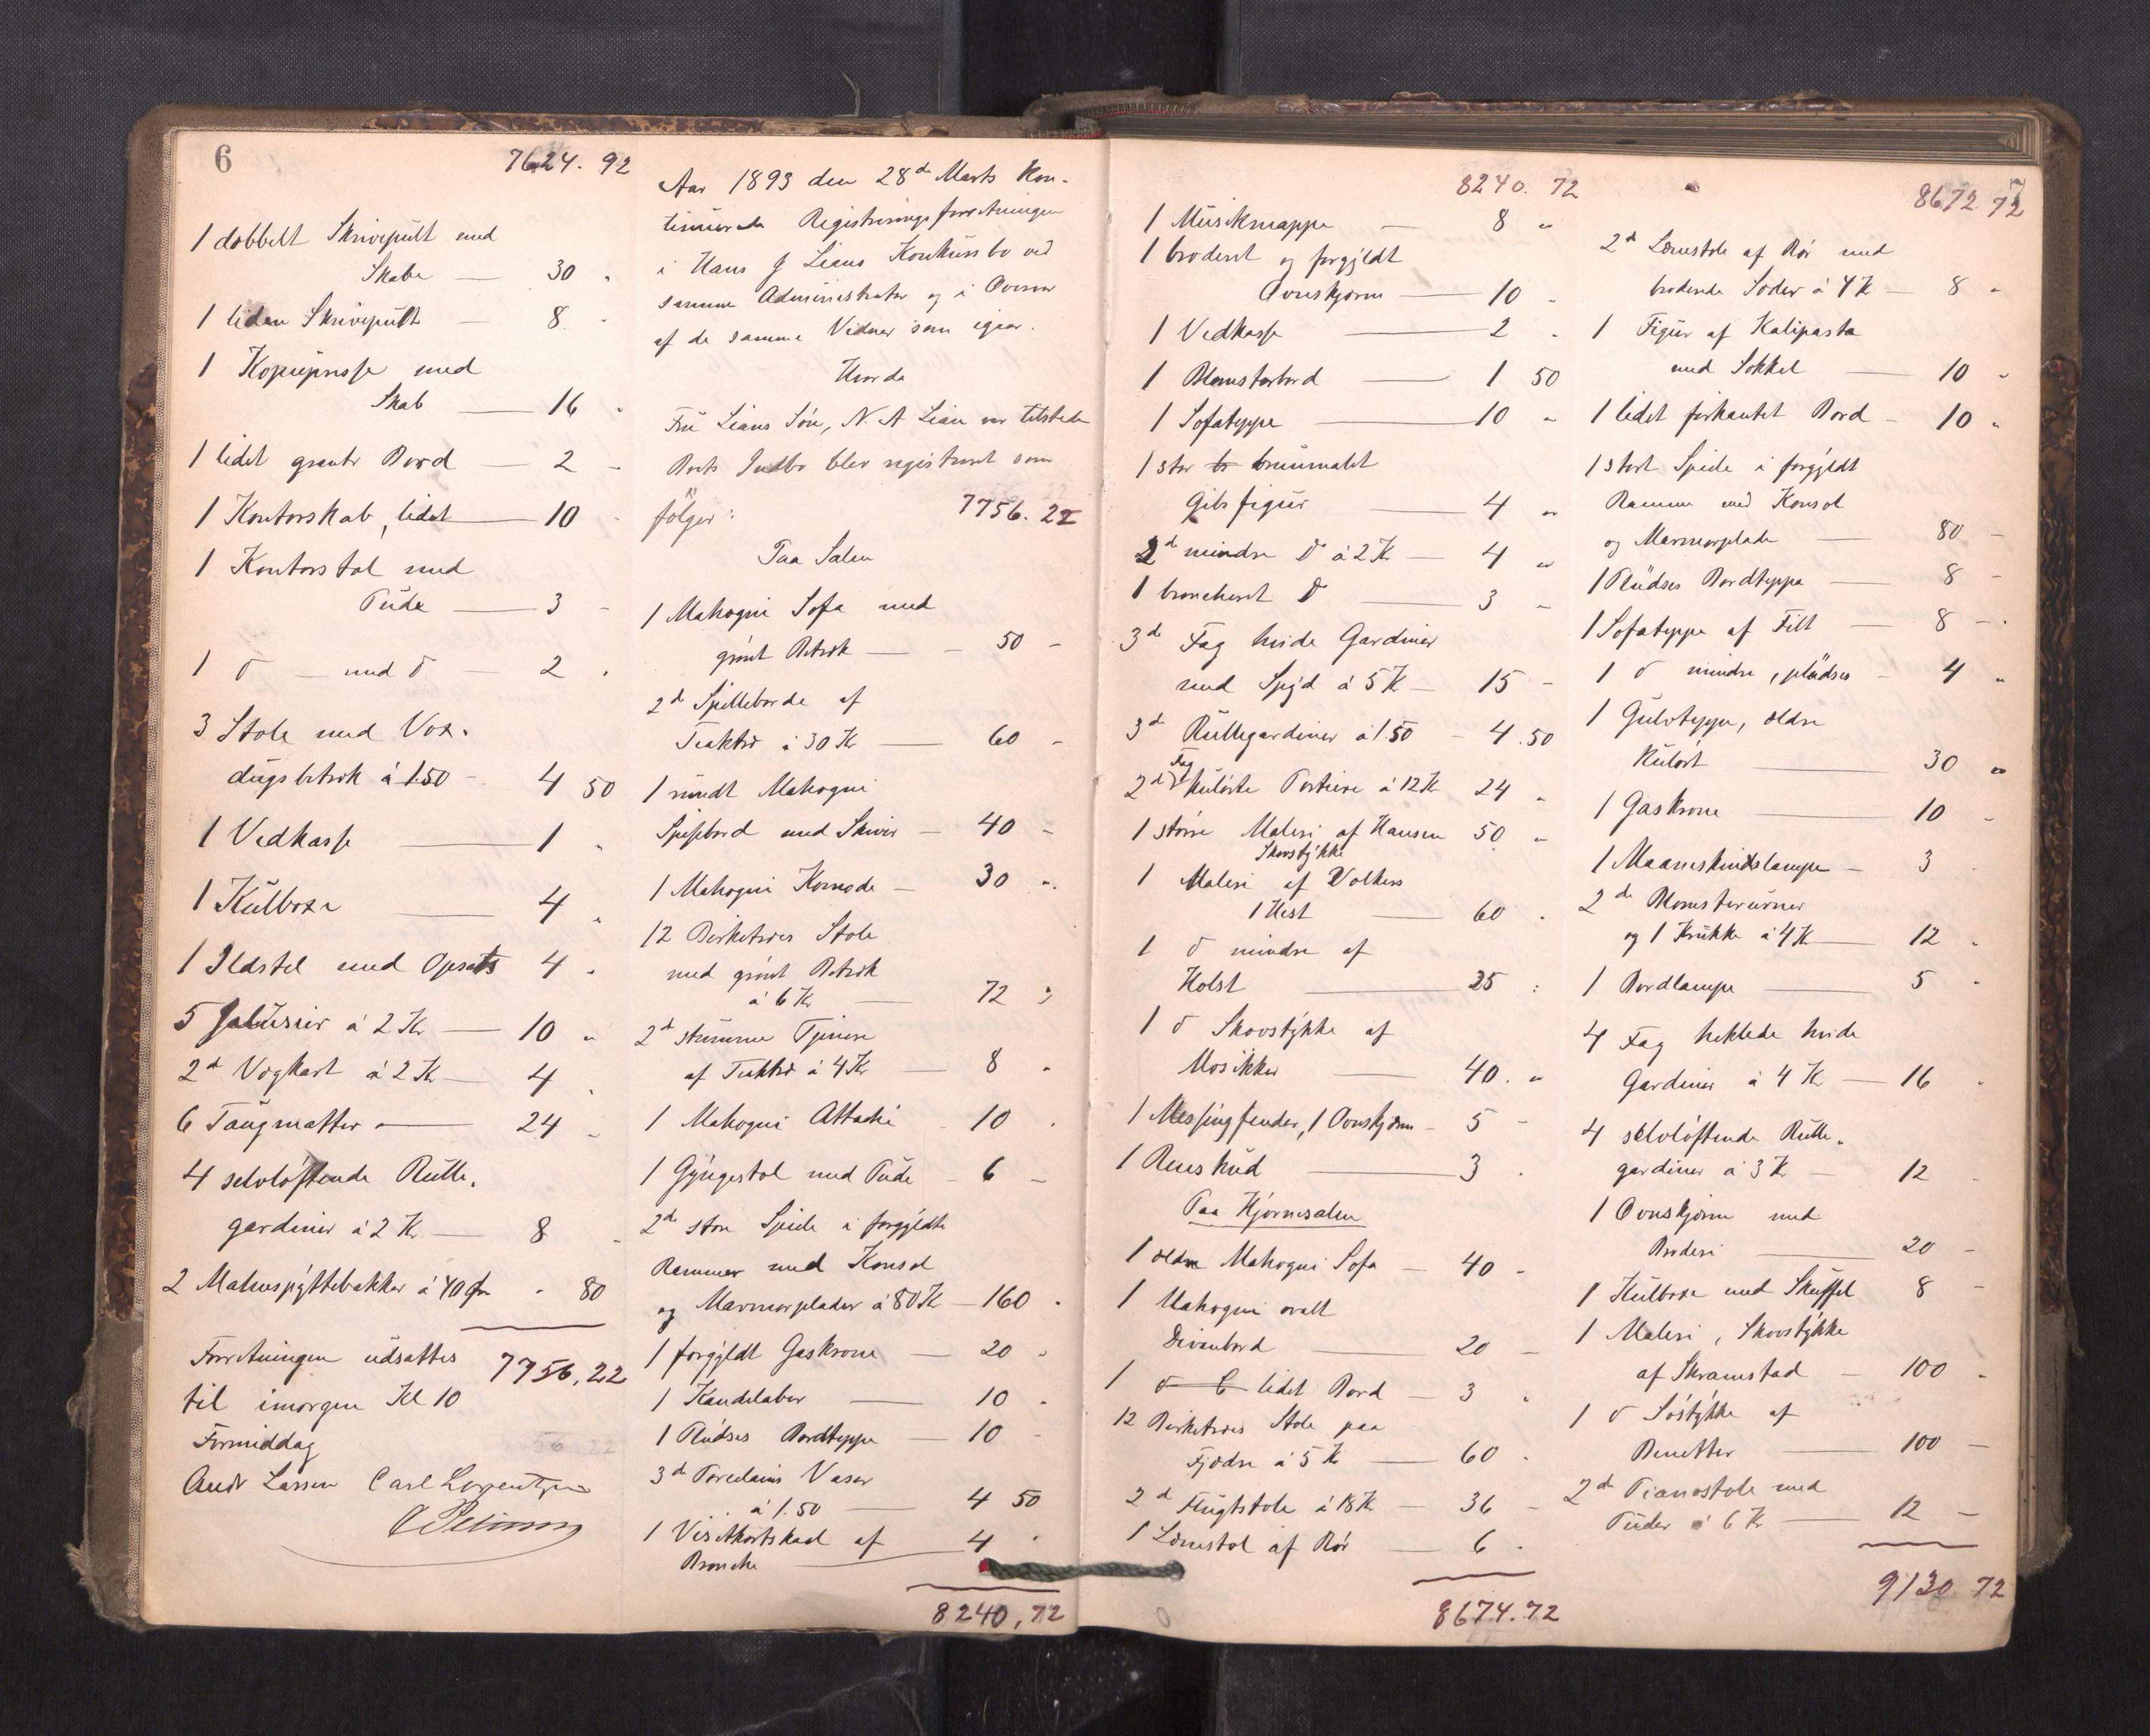 6
7624. 92
1 dobbelt Skrivepult med
Skabe — 30 "
1 liden Skrivepult — 8 "
1 Kopiepresse med
Skab — 16 "
1 lidet Bord — 2 "
1 Kontorskab, lidet — 10 "
1 Kontorstol med
Pude — 3 "
1 do — med do — 2 "
3 Stole med Vox-
dugsbetræk á 1.50 — 4 50
1 Vedkasse — 1 "
1 Kulboxe — 4 "
1 Ildstel med Opsats 4 "
5 Jalusier á 2 Kr — 10 "
2de Vægkart á 2 Kr — 4 "
6 Taugmatter — 24 "
4 selvløftende Rulle-
gardiner á 2 Kr — 8 "
2 Malmspyttebakker á 40 Øre " 80
Forretningen udsattes 7756,22
til imorgen Kl 10
Formiddag
Andr Larsen Carl Lorentzen
Aar 1893 den 28de Marts kon-
tinuerede Registreringsforretningen
i Hans G Lians Konkursbo ved
samme Administrator og i Overvær
af de samme Vidner som igaar.
Hvorda
Fru Lians Søn, N. A Lian var tilstede
Boets Indbo blev registreret som
følger: 7756. 22
Paa Salen
1 Mahogni Sofa med
grønt Betræk — 50 —
2de Spilleborde af
Teaktræ á 30 Kr — 60 —
1 rundt Mahogni
Spisebord med Skiver — 40 —
1 Mahogni Komode — 30 "
12 Birketræes Stole
med grønt Betræk
á 6 Kr — 72 "
2de stumme Tjenere
af Teaktræ á 4 Kr — 8 "
1 Mahogni Attaché 10 "
1 Gyngestol med Pude — 6 —
2de store Speile i forgyldte
Rammer med Konsol
og Marmorplader á 80 Kr — 160 "
1 forgyldt Gaskrone — 20 "
1 Kandelaber — 10 "
1 Pludses Bordteppe — 10 —
3de Porcelains Vaser
á 1.50 — 4 50
1 Visitkortskaal af 4 "
Bronche
8240,72
7
8240. 72
1 Musikmappe — 8 "
1 broderet og forgyldt
Ovnskjærm — 10 "
1 Vedkasse — 2 "
1 Blomsterbord — 1 50
1 Sofateppe — 10 "
1 stor br brunmalet
Gibsfigur — 4 "
2de mindre do á 2 Kr — 4 "
1 broncheret do — 3 "
3de Fag hvide Gardiner
med Spyd á 5 Kr — 15 —
3de Rullegardiner á 1.50 — 4.50
2de Fag kulørte Portiere á 12 Kr 24 "
1 større Maleri af Hansen 50 "
Skovstykke
1 Maleri af Volkers
1 Hest — 60 "
1 do mindre af
Holst — 25 "
1 do Skovstykke af
— 40. "
1 Messingfender, 1 Ovnskjærm — 5 —
1 Renskud — 3 "
Paa Hjørnesalen
1 ældre Mahogni Sofa — 40 —
1 Mahogni ovalt
Divanbord — 20 —
1 do lidet Bord — 3 "
12 Birketræes Stole paa
Fjædre á 5 Kr — 60 "
2de Flugtstole á 18 Kr — 36 —
1 Lænestol af Rør — 6 "
8674.72
8672 72
2de Lænestole af Rør med
broderede Sæder á 4 Kr — 8 "
1 Figur af Kalipasta
med Sokkel — 10 "
1 lidet firkantet Bord — 10 "
1 stort Speile i forgyldt
Ramme med Konsol
og Marmorplade — 80 —
1 Pludses Bordteppe — 8 —
1 Sofateppe af Filt — 8 —
1 do mindre, pludses — 4 "
1 Gulvteppe, ældre
kulørt — 30 "
1 Gaskrone — 10 "
1 Maaneskindslampe — 3
2de Blomsterurner
og 1 Krukke á 4 Kr — 12 "
1 Bordlampe — 5 "
4 Fag heklede hvide
Gardiner á 4 Kr — 16 "
4 selvløftende Rulle-
gardiner á 3 Kr — 12 "
1 Ovnskjærm med
Broderi — 20 —
1 Kulboxe med Skuffel 8 —
1 Maleri, Skovstykke
af Skramstad — 100 "
1 do Søstykke af
Benetter — 100 —
2de Pianostole med
Puder á 6 Kr — 12 —
9130 72